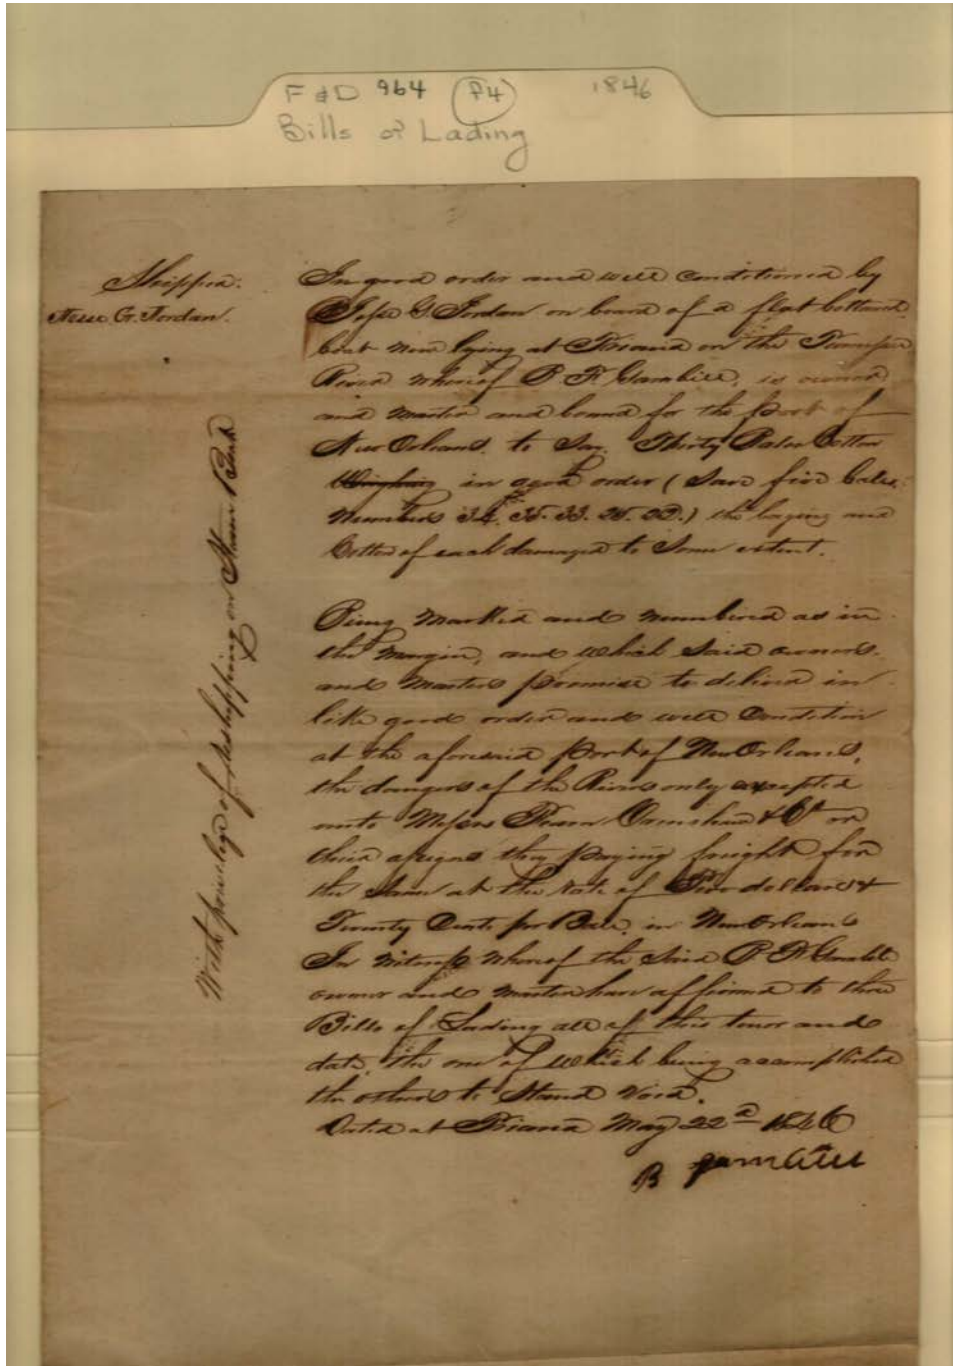 F & D 964 P4 1846
Bills of Lading
Shipper.
Jesse G. Jordan.
In good order and well conditioned by
Jesse G Jordan on board of a flat bottomed
boat now lying at Triana on the Tennessee
River whereof B F Gambill, is owner
and master and bound for the port of
New Orleans. to Say. Thirty Bales Cotton
Weighing in good order (Save five bales
Numbers 34. 33.) the baging and
Cotton of each damaged to Some extent.
Being Marked and numbered as in
the Margin, and which Said owners.
and Masters promise to deliver in
like good order and well Condition
at the aforesaid port of New Orleans,
the dangers of the River only excepted
unto Messrs & Co or
their assigns they paying freight for
the Same at the rate of dollars &
Twenty Cents per Bale. in New Orleans
In witness whereof the Said B F Gambill
owner and master have affirmed to three
Bills of Lading all of this tenor and
date, the one of which being accomplished
the others to Stand Void.
Dated at Triana May 22d 1846
B Gambill
With privilege of Reshipping on Steam Boat